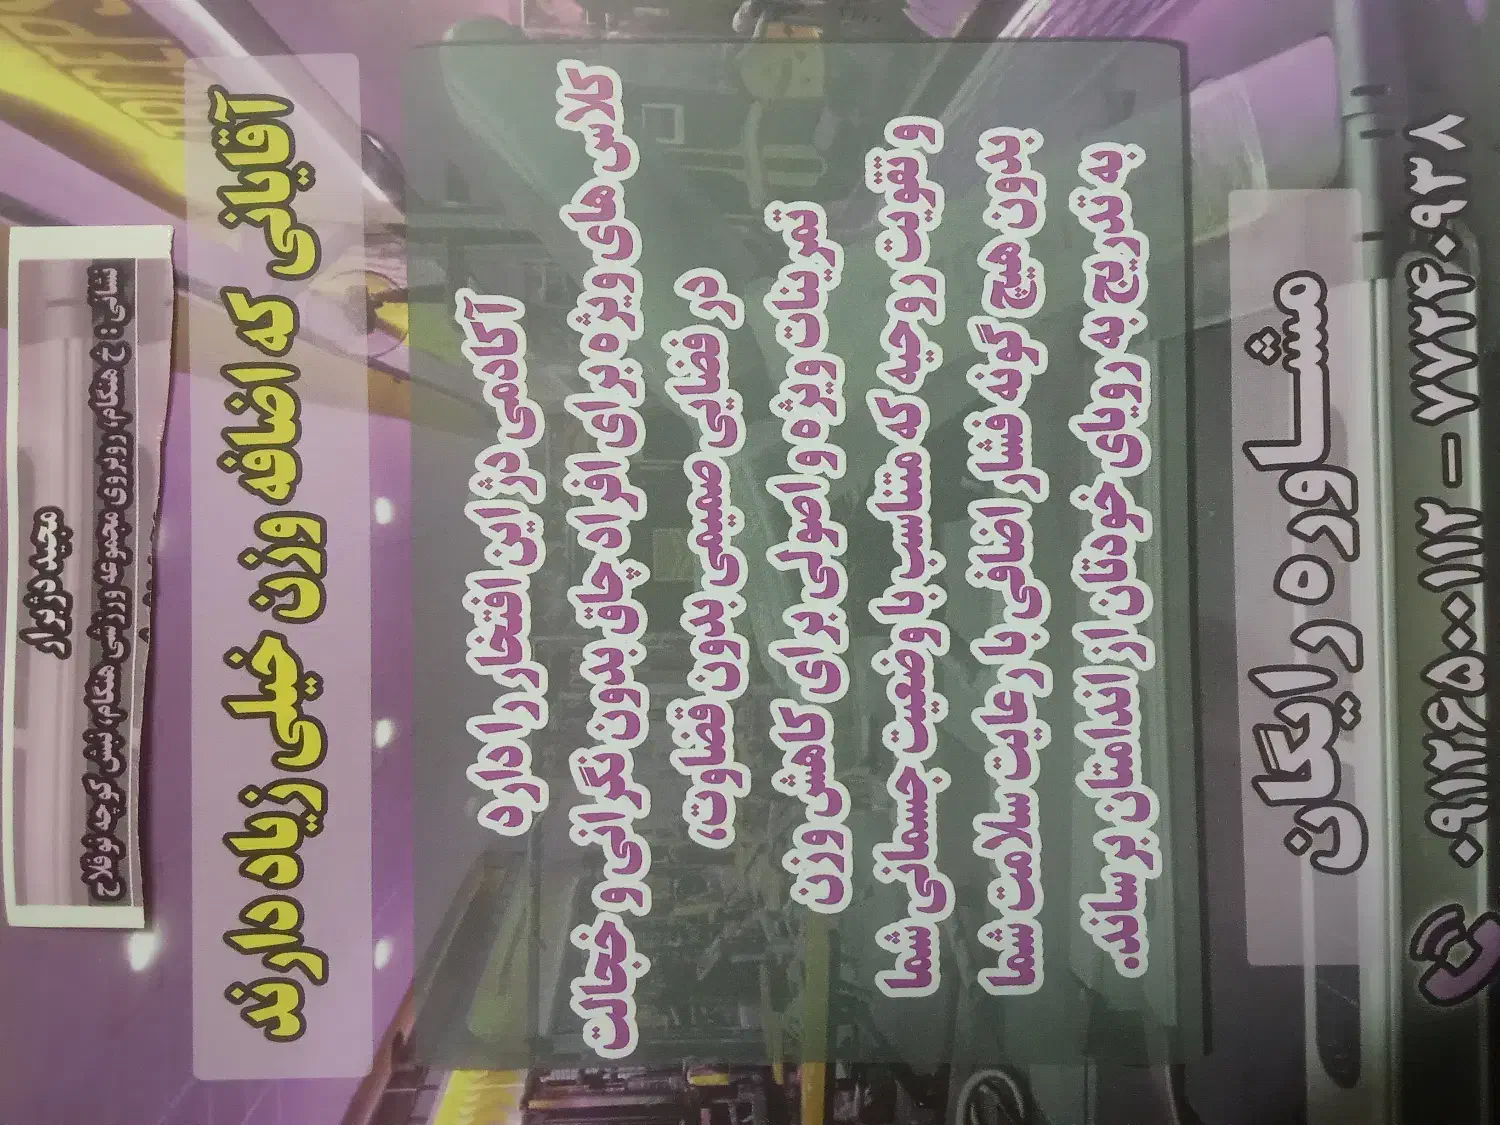 مجید دژبرار
نشانی: خ هنگام، روبروی مجموعه ورزشی هنگام، نبش کوچه نوفلاح
آقایانی که اضافه وزن خیلی زیاد دارند
آکادمی دژ این افتخار را دارد
کلاس های ویژه برای افراد چاق بدون نگرانی و خجالت
در فضایی صمیمی بدون قضاوت،
تمرینات ویژه و اصولی برای کاهش وزن
و تقویت روحیه که متناسب با وضعیت جسمانی شما
بدون هیچ گونه فشار اضافی با رعایت سلامت شما
به تدریج به رویای خودتان از اندامتان برساند.
مشاوره رایگان
۰۹۱۲۶۵۰۰۱۱۲ - ۷۷۲۴۰۹۳۸